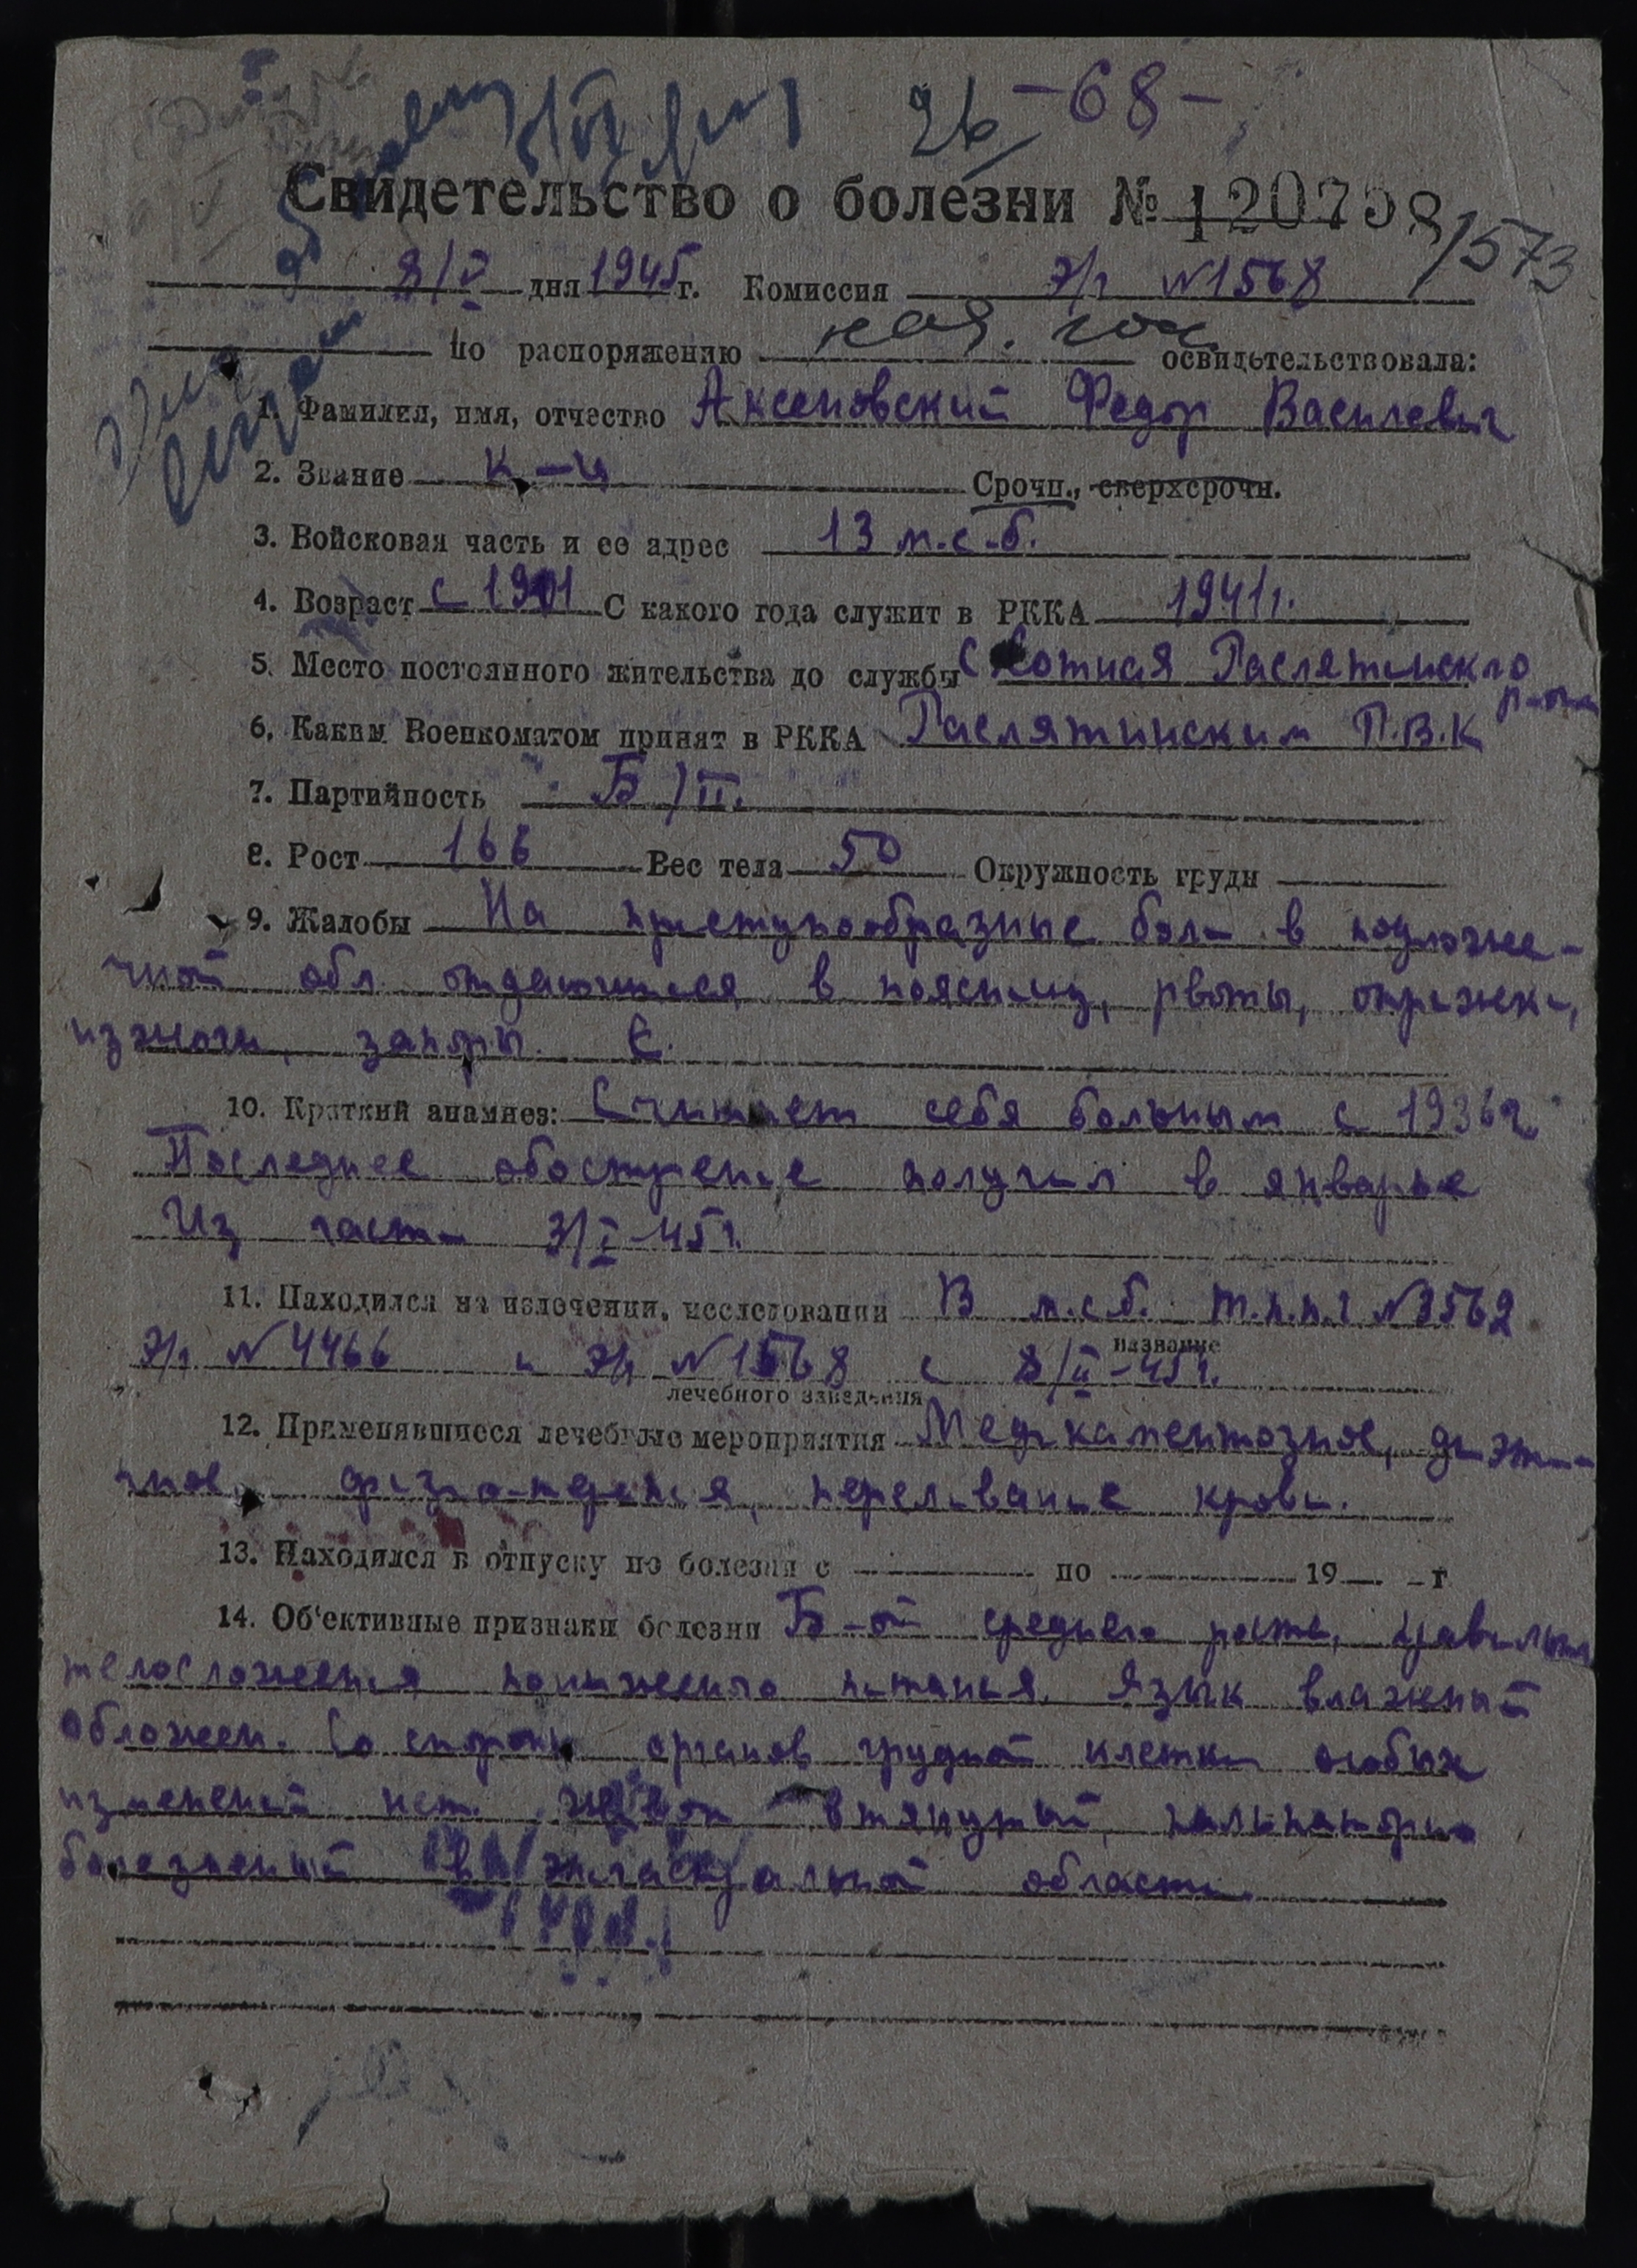 26 -68-
Свидетельство о болезни № 120798/1573
8/V дня 1945 г. Комиссия э/г №1568
по распоряжению нач. гос. освидетельствовала:
1. Фамилия, имя, отчество Аксеновский Федор Василевич
2. Звание к-ц Срочн., сверхсрочн.
3. Войсковая часть и ее адрес 13 м.с.б.
4. Возраст с 1901 С какого года служит в РККА 1941г.
5. Место постоянного жительства до службы с Сотная Гаслятинского р-она
6. Каким Военкоматом принят в РККА Гаслятинским Р.В.К
7. Партийность Б/П.
8. Рост 166 Вес тела 50 Окружность груди
9. Жалобы На приступообразные боли в подложе-
чной обл. отдающиеся в поясницу, рвоты, отрыжки,
изжоги, запоры.
10. Краткий анамнез: Считает себя больным с 1936г.
Последнее обострение получил в январье
Из части 3/I-45г.
11. Находился на излечении, исследовании В м.с.б. т.п.п.г №3562
название
э/г. №4466 и э/г №1568 с 8/II-45г.
лечебного заведения
12. Применявшиеся лечебные мероприятия Медикаментозное, диэти-
чное, физио-терепия, переливание крови.
13. Находился в отпуску по болезни с по 19 г
14. Об'ективные признаки болезни Б-ой среднего роста, правильн
телосложения пониженого питанья. Язык влажный
обложен. Со стороны органов грудной клетки особых
изменений нет. Живот втянутый, пальпаторно
болезненный в эпигастральной области.